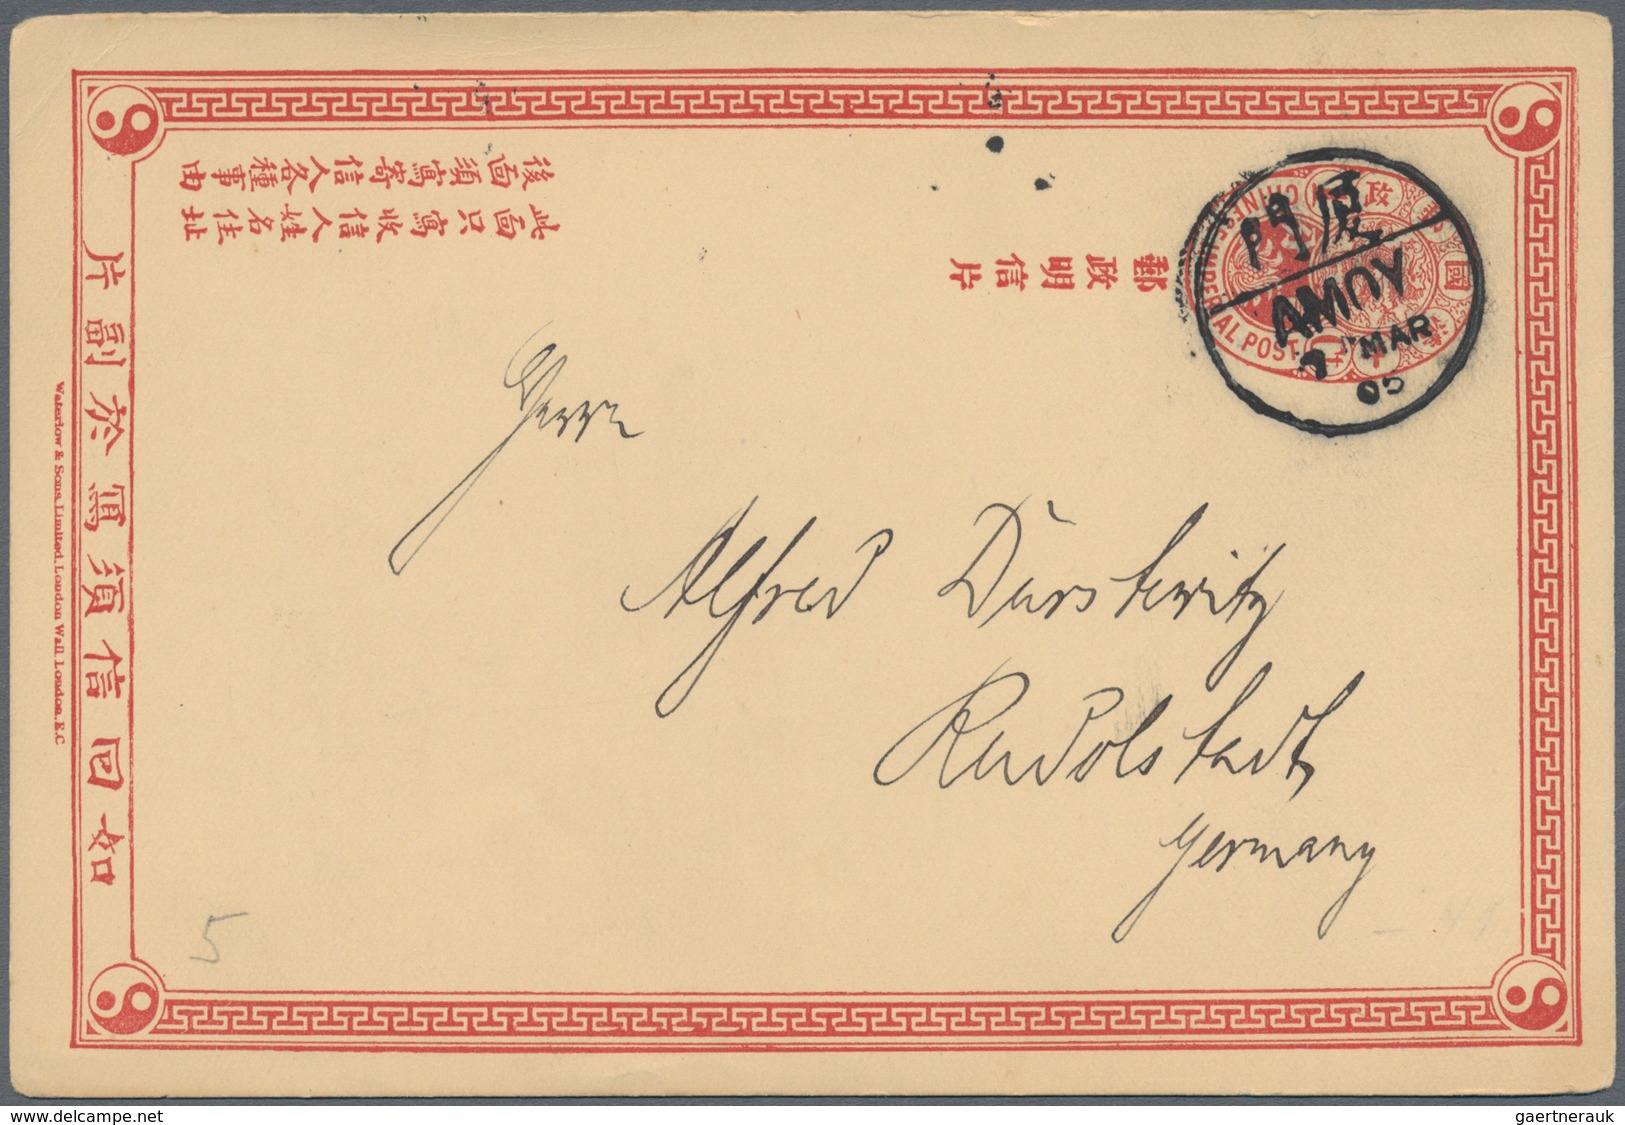 後面須寫寄信人各種事由
此面只寫收信人姓名住址
郵政明信片
CHINESE IMPERIAL POST
廈門
AMOY
7 MAR
05
如回信須寫於副片
Waterlow & Sons Limited, London Wall, London, E.C
Herrn
Alfred Dürstewitz
Rudolstadt
Germany
5
delcampe.net
gaertnerauk